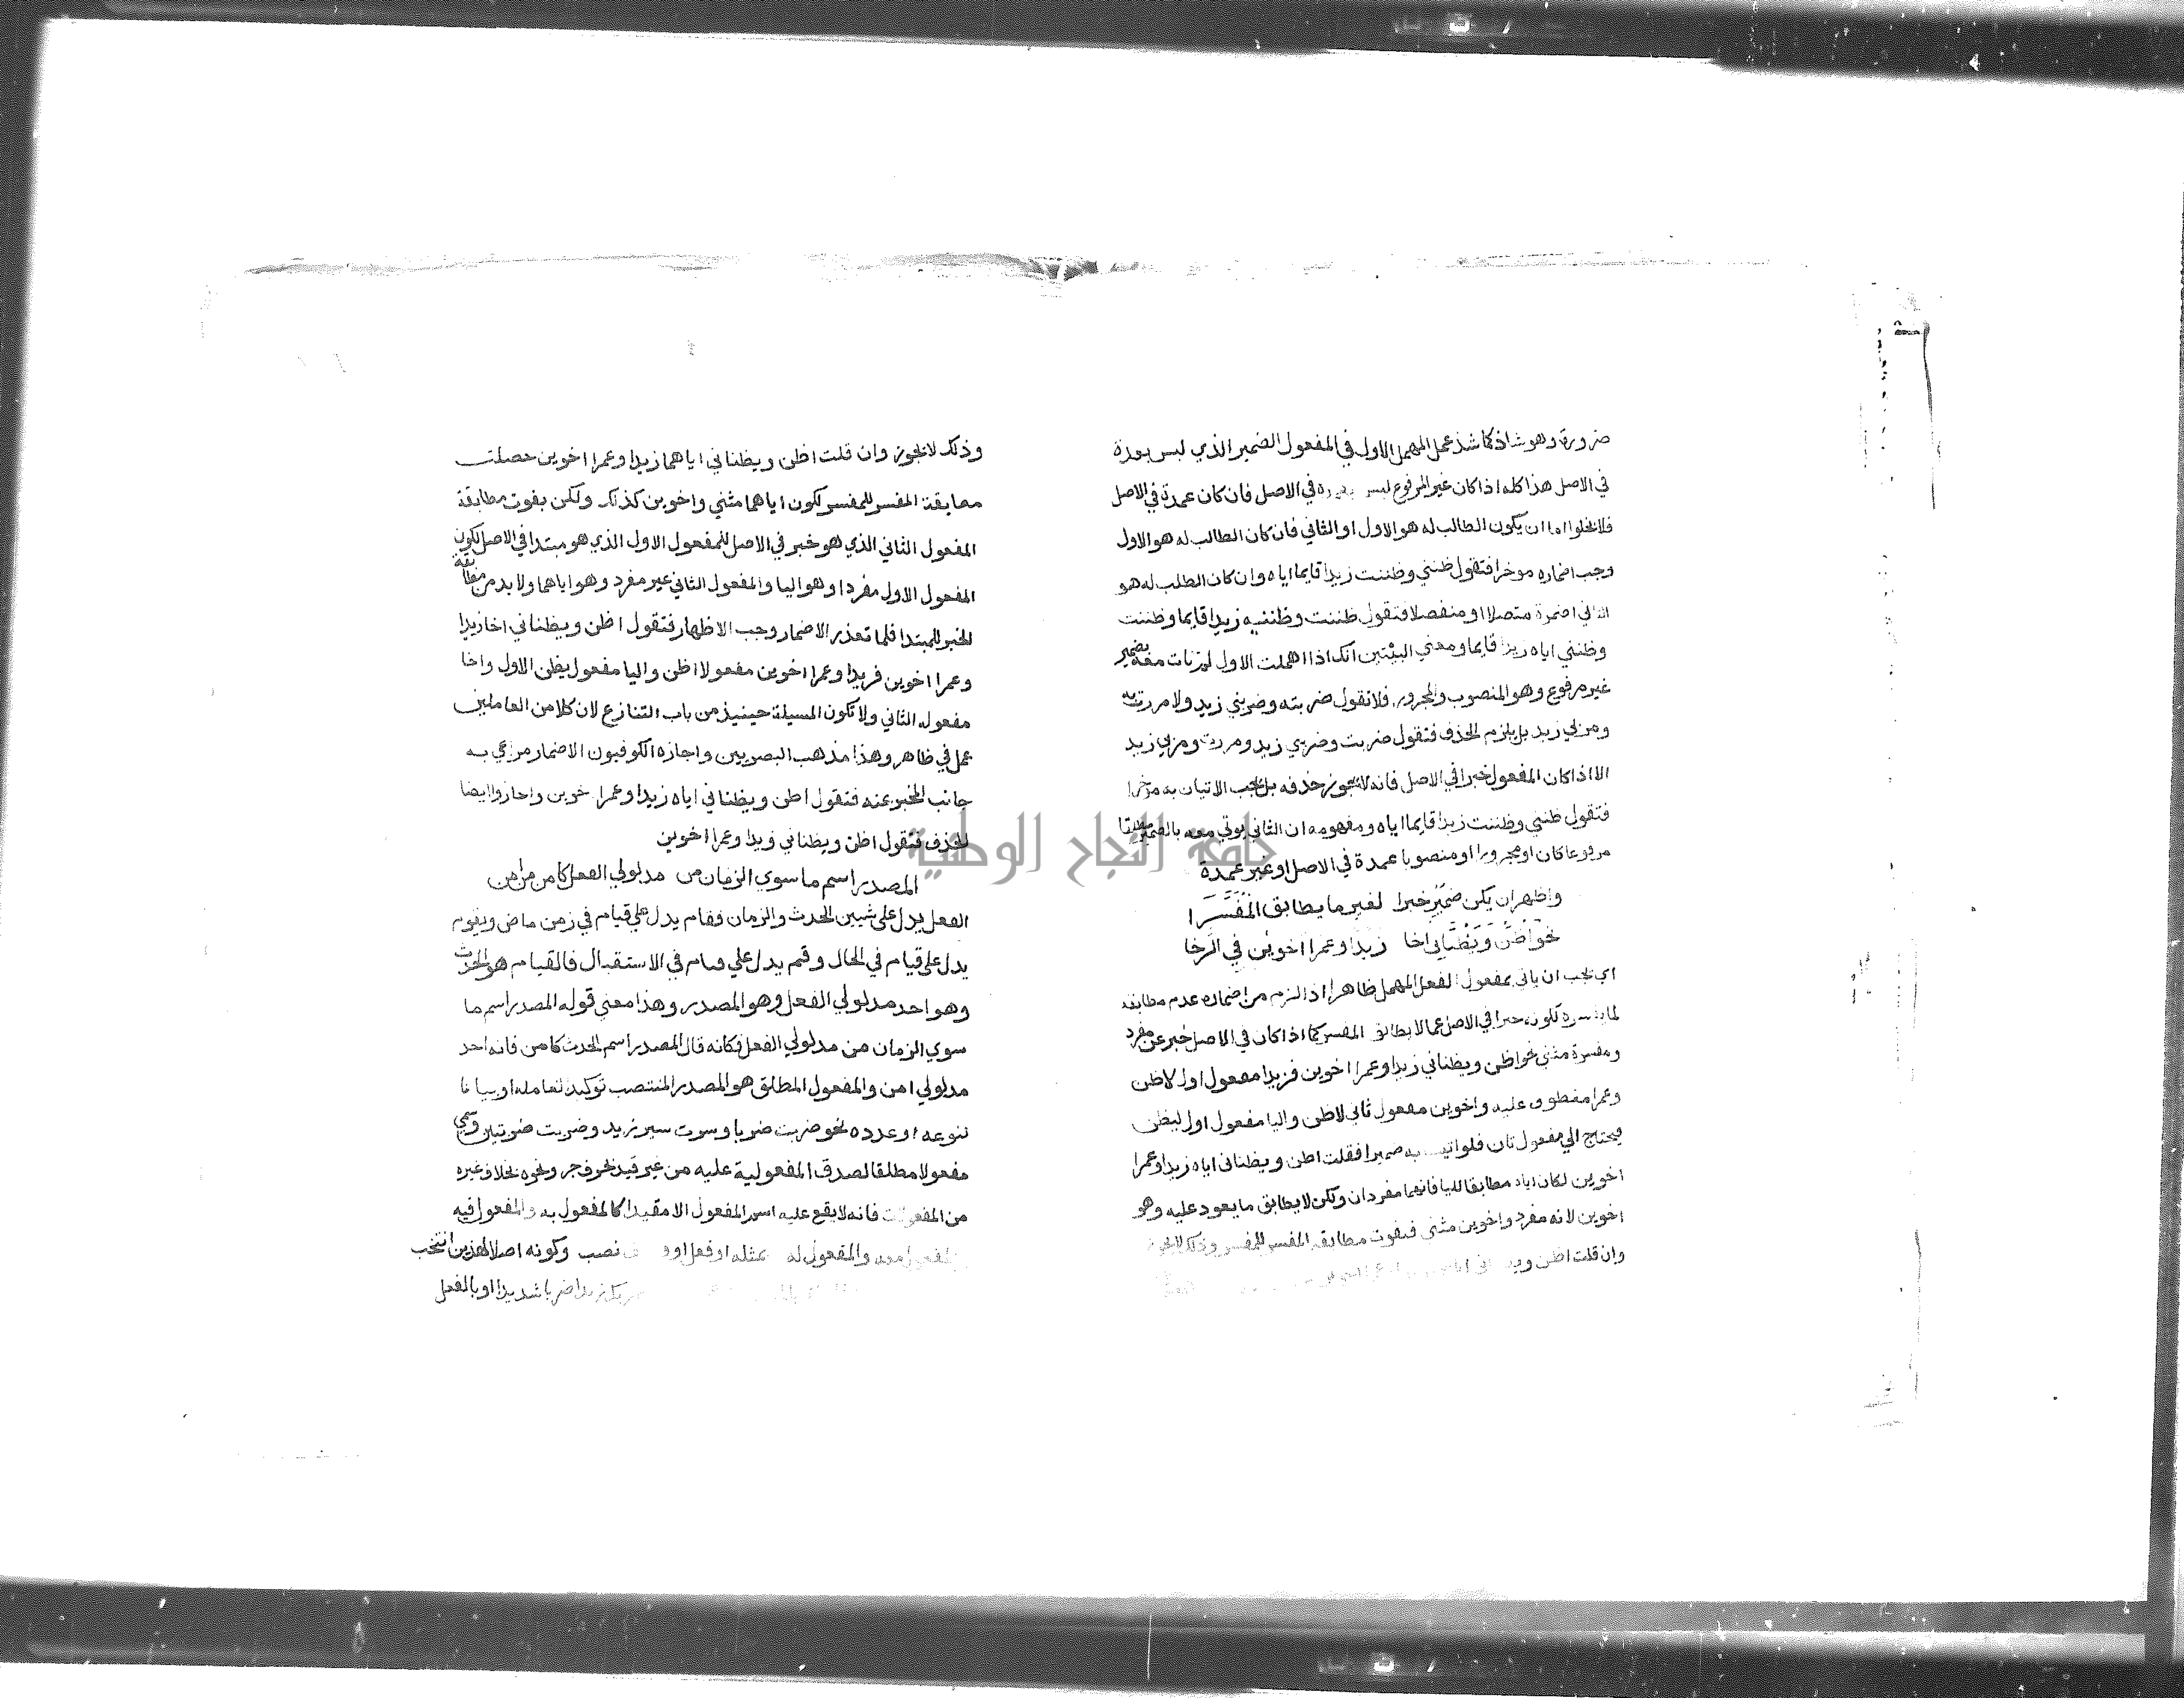 ضرورة وهو شاذ كما شذ عمل المهمل الاول في المفعول الضمير الذي ليس بعمدة
في الاصل هذا كله اذا كان غير المرفوع ليس بعمدة في الاصل فان كان عمدة في الاصل
فلا يخلوا اما ان يكون الطالب له هو الاول او الثاني فان كان الطالب له هو الاول
وجب اضماره موخرا فتقول ظنني وظننت زيدا قايما اياه وان كان الطلب له هو
الثاني اضمرة متصلا او منفصلا فتقول ظننت وظننيه زيدا قايما وظننت
وظنني اياه زيدا قايما ومعني البيتين انك اذا اهملت الاول لم تات معه بضمير
غير مرفوع وهو المنصوب والمجرور فلا تقول ضربته وضربني زيد ولا مررت به
ومر بي زيد بل يلزم الحذف فتقول ضربت وضربني زيد ومررت ومر بي زيد
الا اذا كان المفعول خبرا في الاصل فانه لا يجوز حذفه بل يجب الاتيان به موخرا
فتقول ظنني وظننت زيدا قايما اياه ومفهومه ان الثاني يوتي معه بالضمير مطلقا
مرفوعا كان او مجرورا او منصوبا عمدة في الاصل او غير عمدة
واظهر ان يكن ضمير خبرا لغير ما يطابق المفسرا
نحو اظن ويظناني اخا زيدا وعمرا اخوين في الرخا
اي يجب ان ياتي بمفعول الفعل المهمل ظاهرا اذا لزم من اضماره عدم مطابقه
لما يفسره لكونه خبرا في الاصل عما لا يطابق المفسر كما اذا كان في الاصل خبر عن مفرد
ومفسرة مثنى نحو اظن ويظناني زيدا وعمرا اخوين فزيدا مفعول اول لاظن
وعمرا معطوف عليه واخوين مفعول ثاني لاظن واليا مفعول اول ليظن
فيحتاج الي مفعول ثان فلو اتيت به ضميرا فقلت اظن ويظناني اياه زيدا وعمرا
اخوين لكان اياه مطابقا لليا فانهما مفردان ولكن لا يطابق ما يعود عليه وهو
اخوين لانه مفرد واخوين مثنى فتفوت مطابقه المفسر للمفسر وذلك لا يجوز
وان قلت اظن
وذلك لا يجوز وان قلت اظن ويظناني اياهما زيدا وعمرا اخوين حصلت
مطابقة المفسر للمفسر لكون اياهما مثني واخوين كذلك ولكن يفوت مطابقة
المفعول الثاني الذي هو خبر في الاصل للمفعول الاول الذي هو مبتدا في الاصل لكون
المفعول الاول مفردا وهو اليا والمفعول الثاني غير مفرد وهو اياهما ولا بد من مطابقة
الخبر للمبتدا فلما تعذر الاضمار وجب الاظهار فتقول اظن ويظناني اخا زيدا
وعمرا اخوين فزيدا وعمرا اخوين مفعولا اظن واليا مفعول يظن الاول واخا
مفعوله الثاني ولا تكون المسيلة حينيذ من باب التنازع لان كلا من العاملين
عمل في ظاهر وهذا مذهب البصريين واجازه الكوفيون الاضمار مرعي به
جانب المخبر عنه فتقول اظن ويظناني اياه زيدا وعمرا اخوين واجازوا ايضا
الحذف فتقول اظن ويظناني زيدا وعمرا اخوين
المصدر اسم ما سوي الزمان من مدلولي الفعل كامن من امن
الفعل يدل على شيين الحدث والزمان فقام يدل علي قيام في زمن ماض ويقوم
يدل علي قيام في الحال وقم يدل علي قيام في الاستقبال فالقيام هو الحدث
وهو احد مدلولي الفعل وهو المصدر وهذا معني قوله المصدر اسم ما
سوي الزمان من مدلولي الفعل فكانه قال المصدر اسم الحدث كامن فانه احد
مدلولي امن والمفعول المطلق هو المصدر المنتصب توكيدا لعامله او بيانا
لنوعه او عدده نحو ضربت ضربا وسرت سير زيد وضربت ضربتين وسمي
مفعولا مطلقا لصدق المفعولية عليه من غير قيد بحرف جر ونحوه بخلاف غيره
من المفعولات فانه لا يقع عليه اسم المفعول الا مقيدا كالمفعول به والمفعول فيه
والمفعول معه والمفعول له بمثله او فعل او وصف نصب وكونه اصلا لهذين انتخب
زيدا ضربا شديدا او بالفعل
جامعة النجاح الوطنية